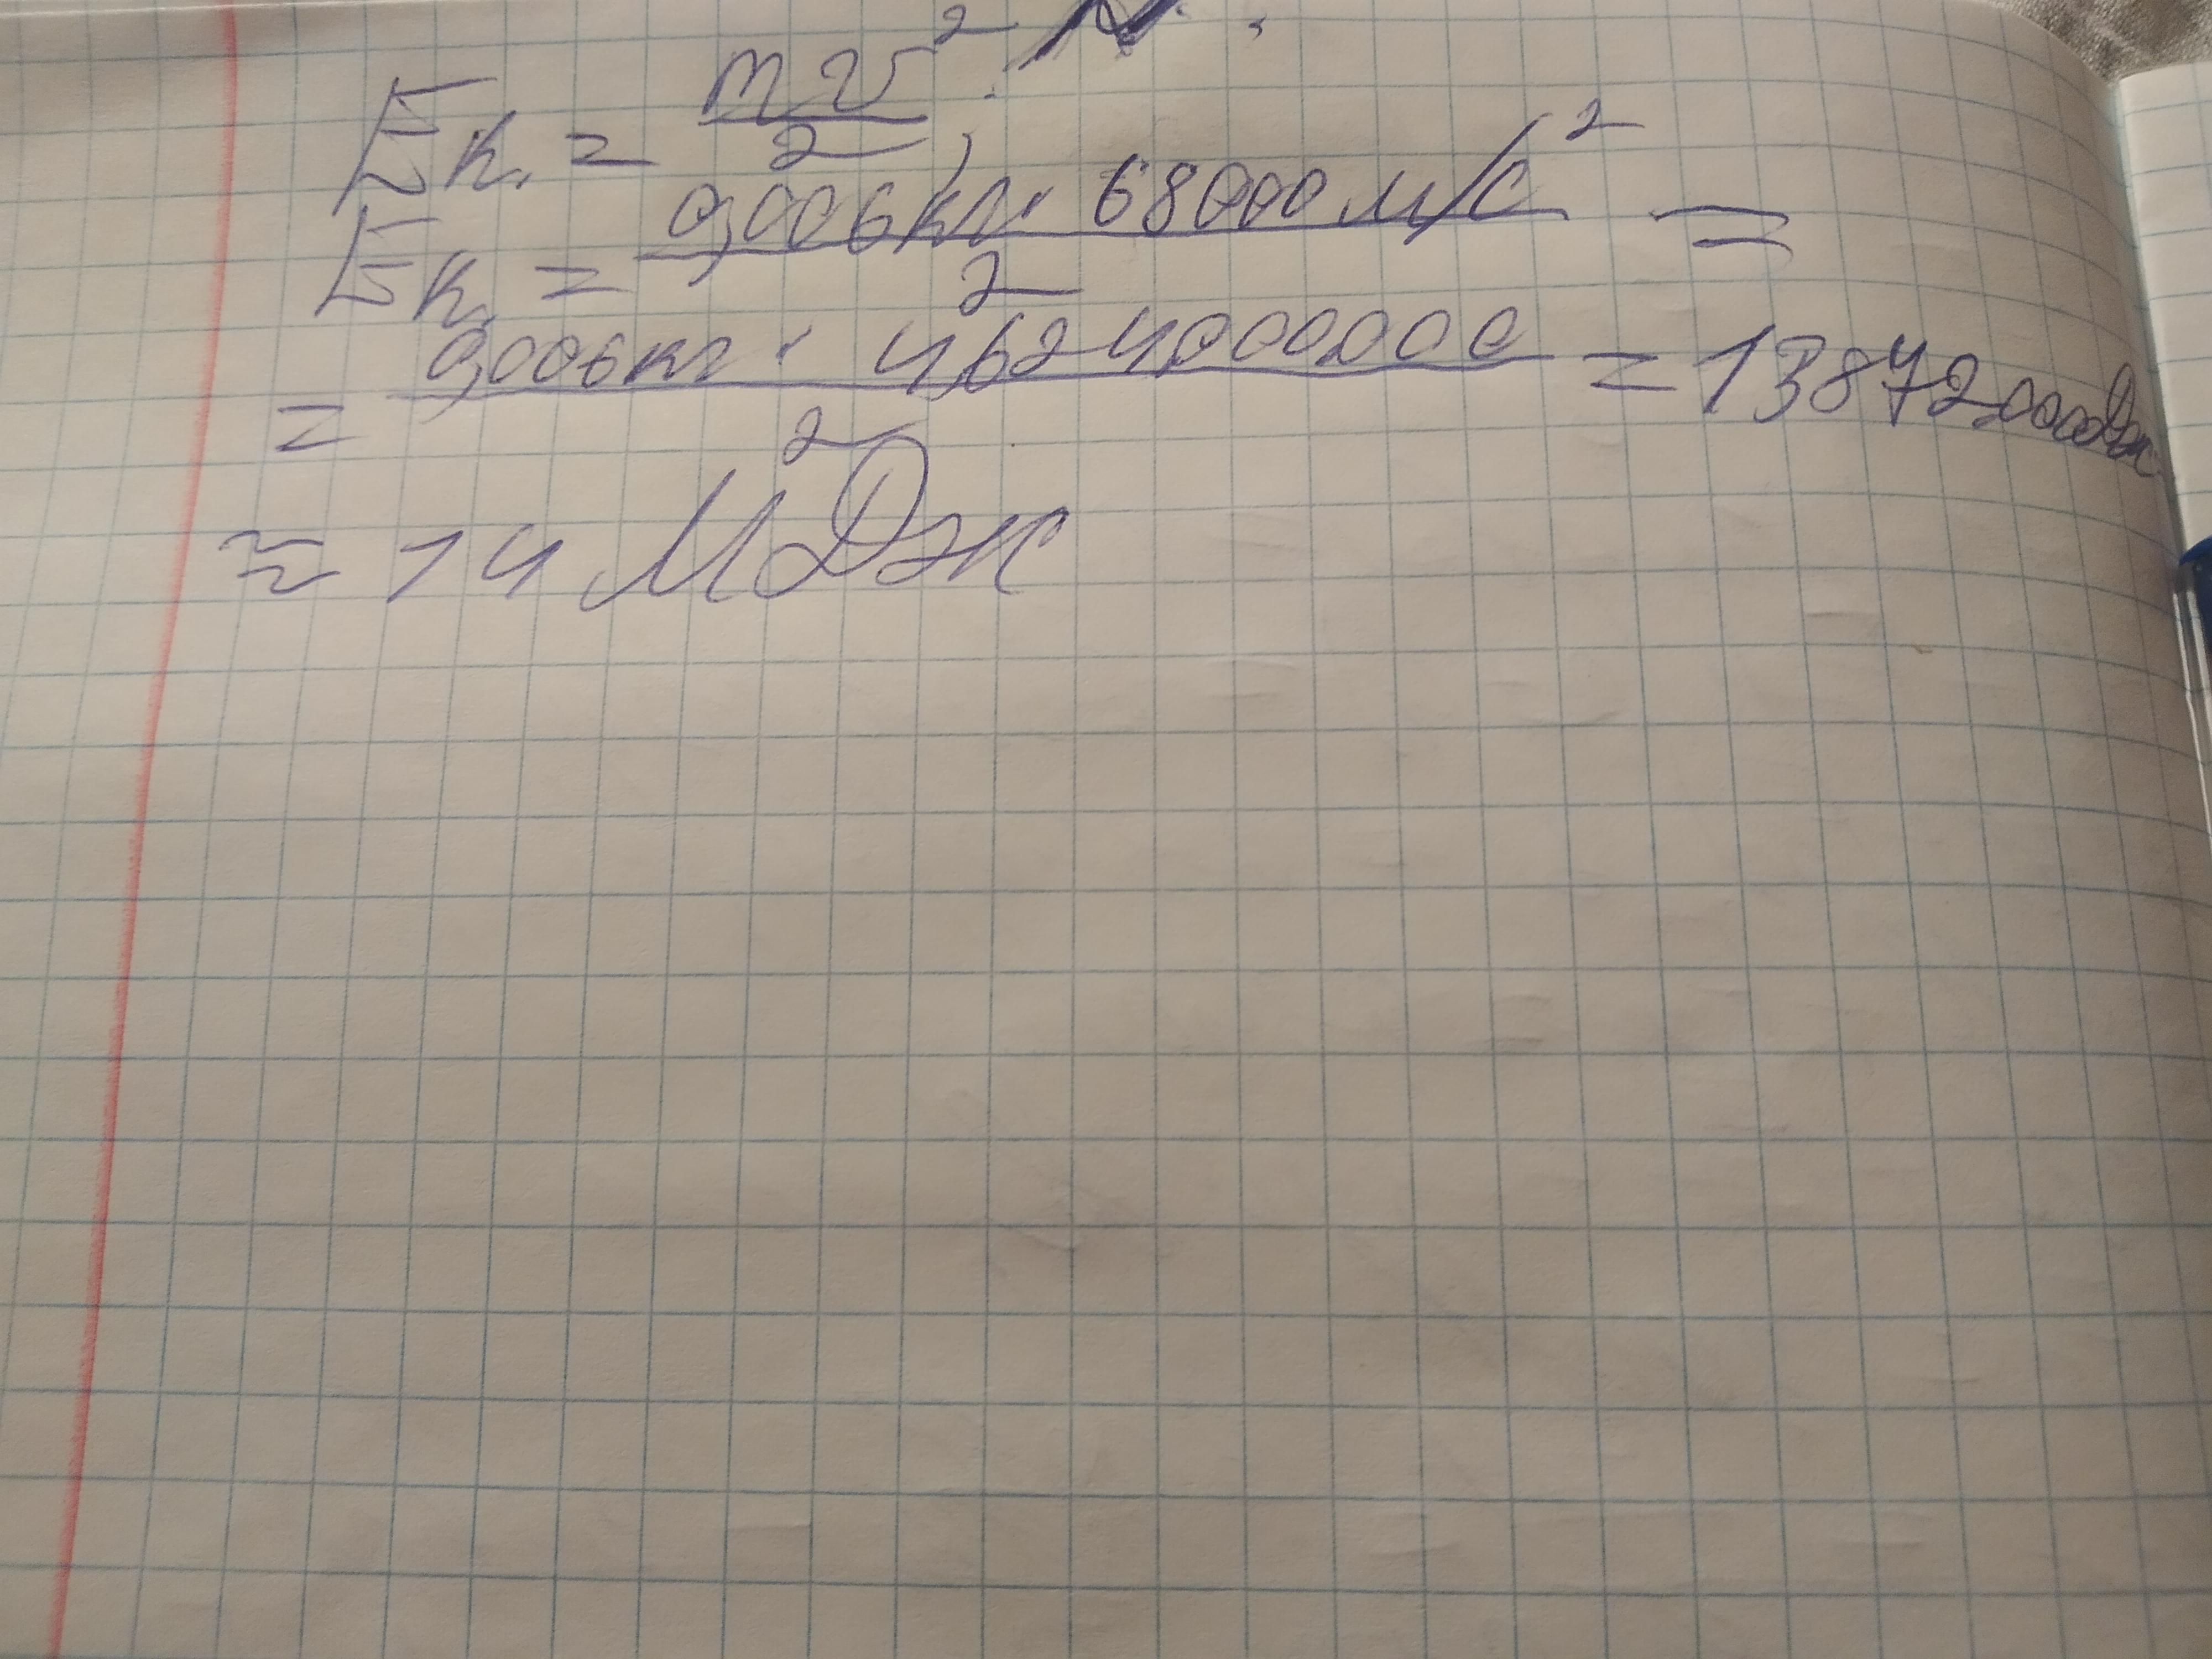 Eк. = mv² / 2;
Eк. = 0,006кг · 68000 м/с² / 2 =
= 0,006кг · 4624000000 / 2 = 13872000Дж
≈ 14 МДж